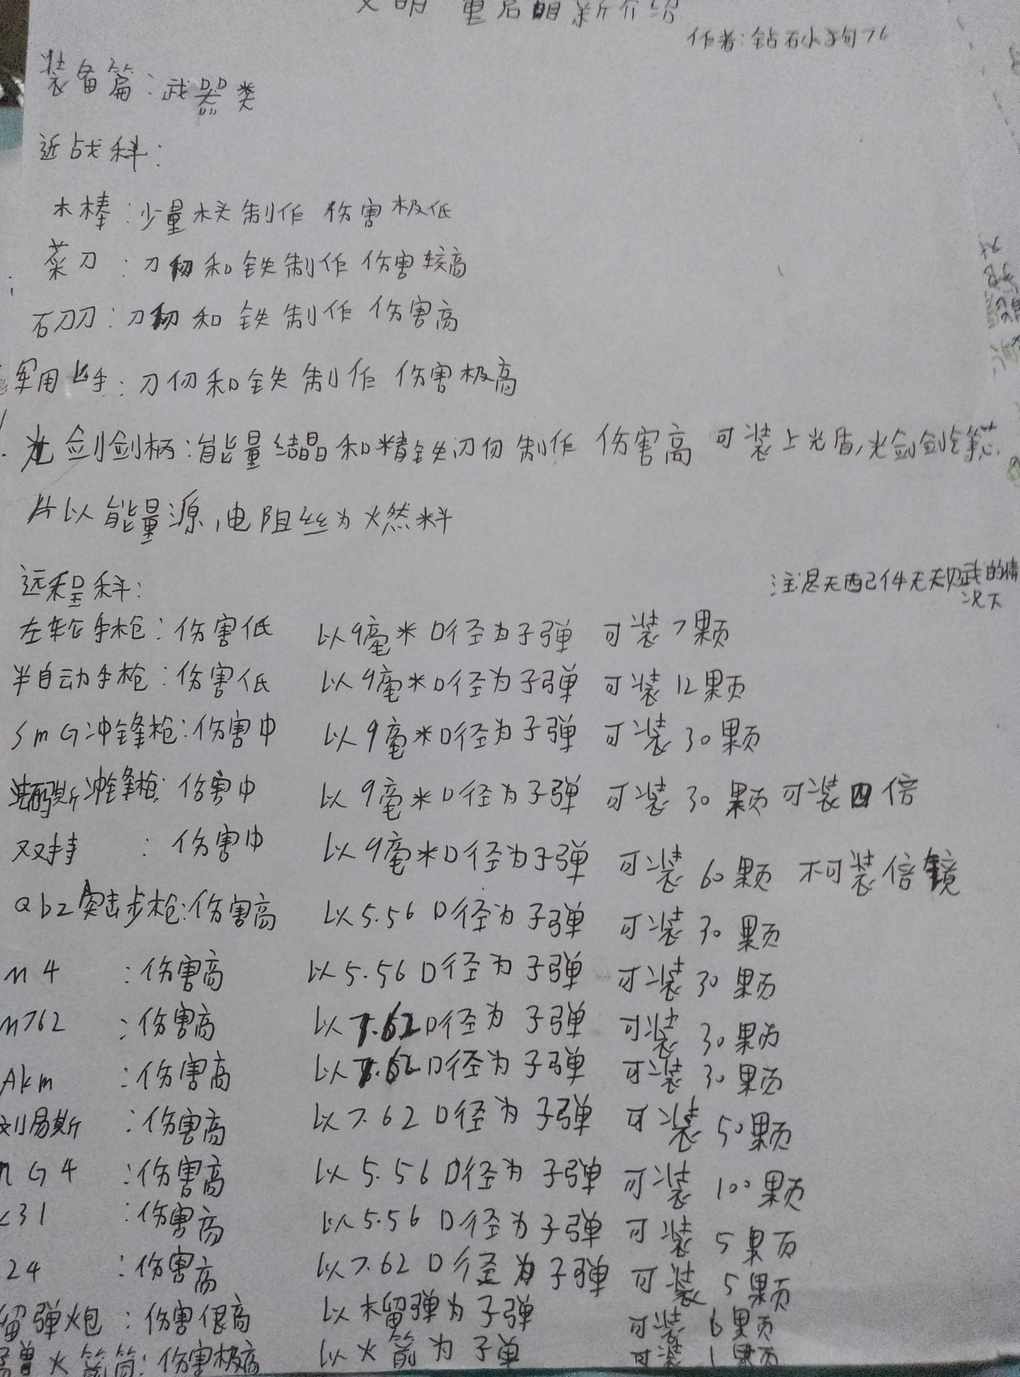 文明重启萌新介绍
作者:钻石小狗76
装备篇:武器类
近战科:
木棒:少量木头制作 伤害极低
菜刀:刀刃和铁制作 伤害较高
石刀:刀刃和铁制作 伤害高
军用匕手:刀仞和铁制作 伤害极高
光剑剑柄:能量结晶和精铁刃仞制作 伤害高 可装上光盾,光剑剑
片以能量源,电阻丝为燃料
远程科:
注:是无配件无天赋的情
况下
左轮手枪:伤害低 以9毫米口径为子弹 可装7颗
半自动手枪:伤害低 以9毫米口径为子弹 可装12颗
smG冲锋枪:伤害中 以9毫米口径为子弹 可装30颗
冲锋枪:伤害中 以9毫米口径为子弹 可装30颗可装四倍
双持:伤害中 以9毫米口径为子弹 可装60颗 不可装倍镜
abz突击步枪:伤害高 以5.56口径为子弹 可装30颗
m4:伤害高 以5.56口径为子弹 可装30颗
m762:伤害高 以7.62口径为子弹 可装30颗
Akm:伤害高 以7.62口径为子弹 可装30颗
刘易斯:伤害高 以7.62口径为子弹 可装50颗
G4:伤害高 以5.56口径为子弹 可装100颗
31:伤害高 以5.56口径为子弹 可装5颗
24:伤害高 以7.62口径为子弹 可装5颗
留弹炮:伤害很高 以榴弹为子弹 可装6颗
火箭筒:伤害极高 以火箭为子单 可装1颗